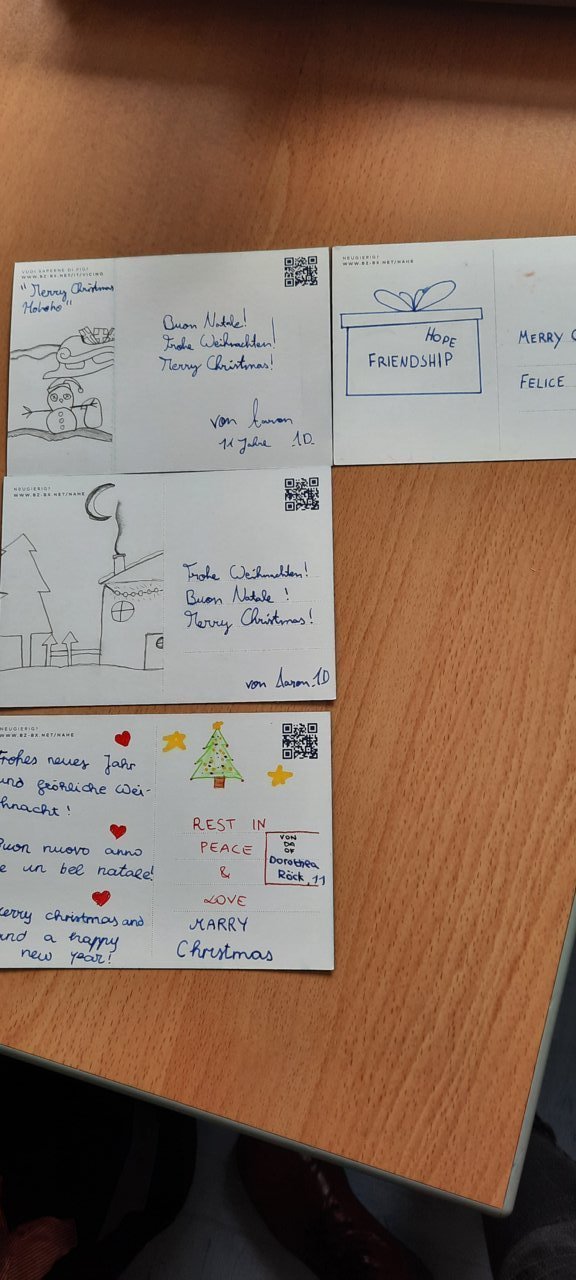 VUOI SAPERNE DI PIÙ?
WWW.BZ-BX.NET/IT/VICINO
"Merry Christmas
Hohoho"
Buon Natale!
Frohe Weihnachten!
Merry Christmas!
von Aaron
11 Jahre 1D
NEUGIERIG?
WWW.BZ-BX.NET/NAHE
HOPE
FRIENDSHIP
MERRY C
FELICE
NEUGIERIG?
WWW.BZ-BX.NET/NAHE
Frohe Weihnachten!
Buon Natale !
Merry Christmas!
von Aaron 1D
NEUGIERIG?
WWW.BZ-BX.NET/NAHE
Frohes neues Jahr
und fröhliche Wei-
hnacht!
Buon nuovo anno
e un bel natale!
Merry christmas and
and a happy
new year!
REST IN
PEACE
&
LOVE
MARRY
Christmas
VON
DA
OF
Dorothea
Röck, 11